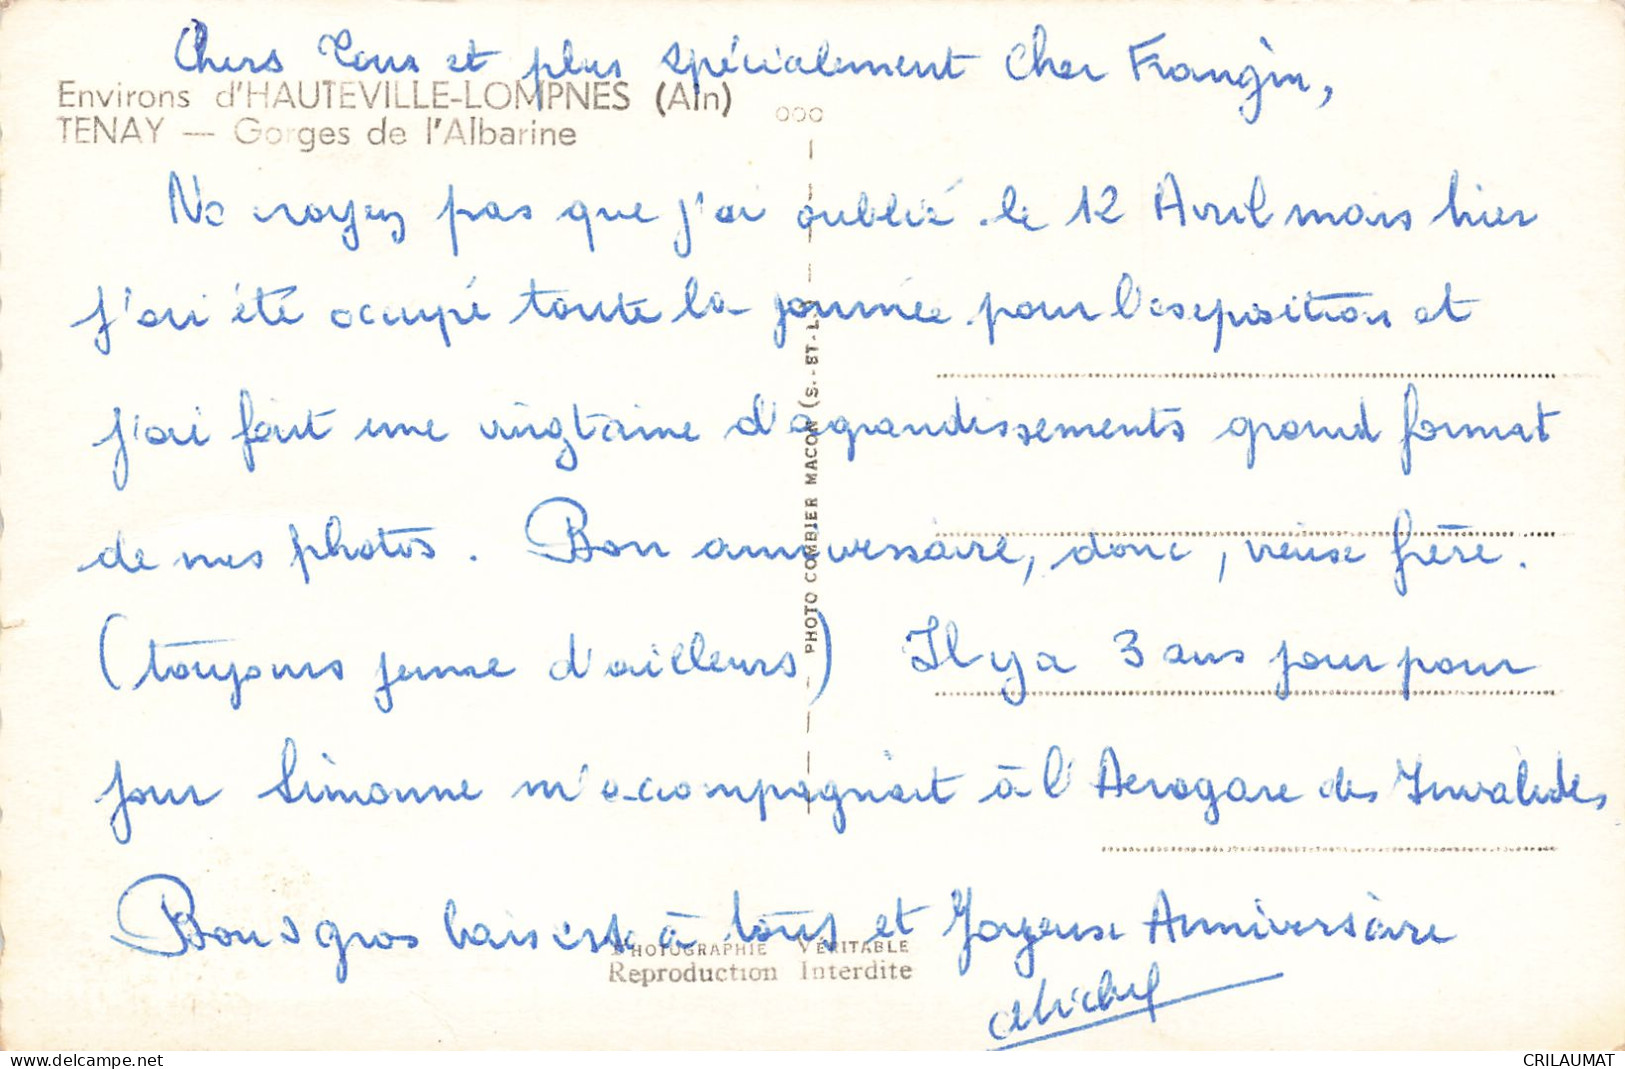 Chers Tous et plus spécialement Cher Frangin,
Environs d'HAUTEVILLE-LOMPNES (Ain)
TENAY — Gorges de l'Albarine
Ne croyez pas que j'ai oublié le 12 Avril mais hier
j'ai été occupé toute la journée pour l'exposition et
j'ai fait une vingtaine d'agrandissements grand format
de mes photos. Bon anniversaire, donc, vieux frère.
(toujours jeune d'ailleurs) Il y a 3 ans jour pour
jour Simonne m'accompagnait à l'Aerogare des Invalides
Bons gros baisers à tous et Joyeuse Anniversaire
Michel
PHOTO COMBIER MACON (S.-ET-L.)
PHOTOGRAPHIE VÉRITABLE
Reproduction Interdite
www.delcampe.net
CRILAUMAT